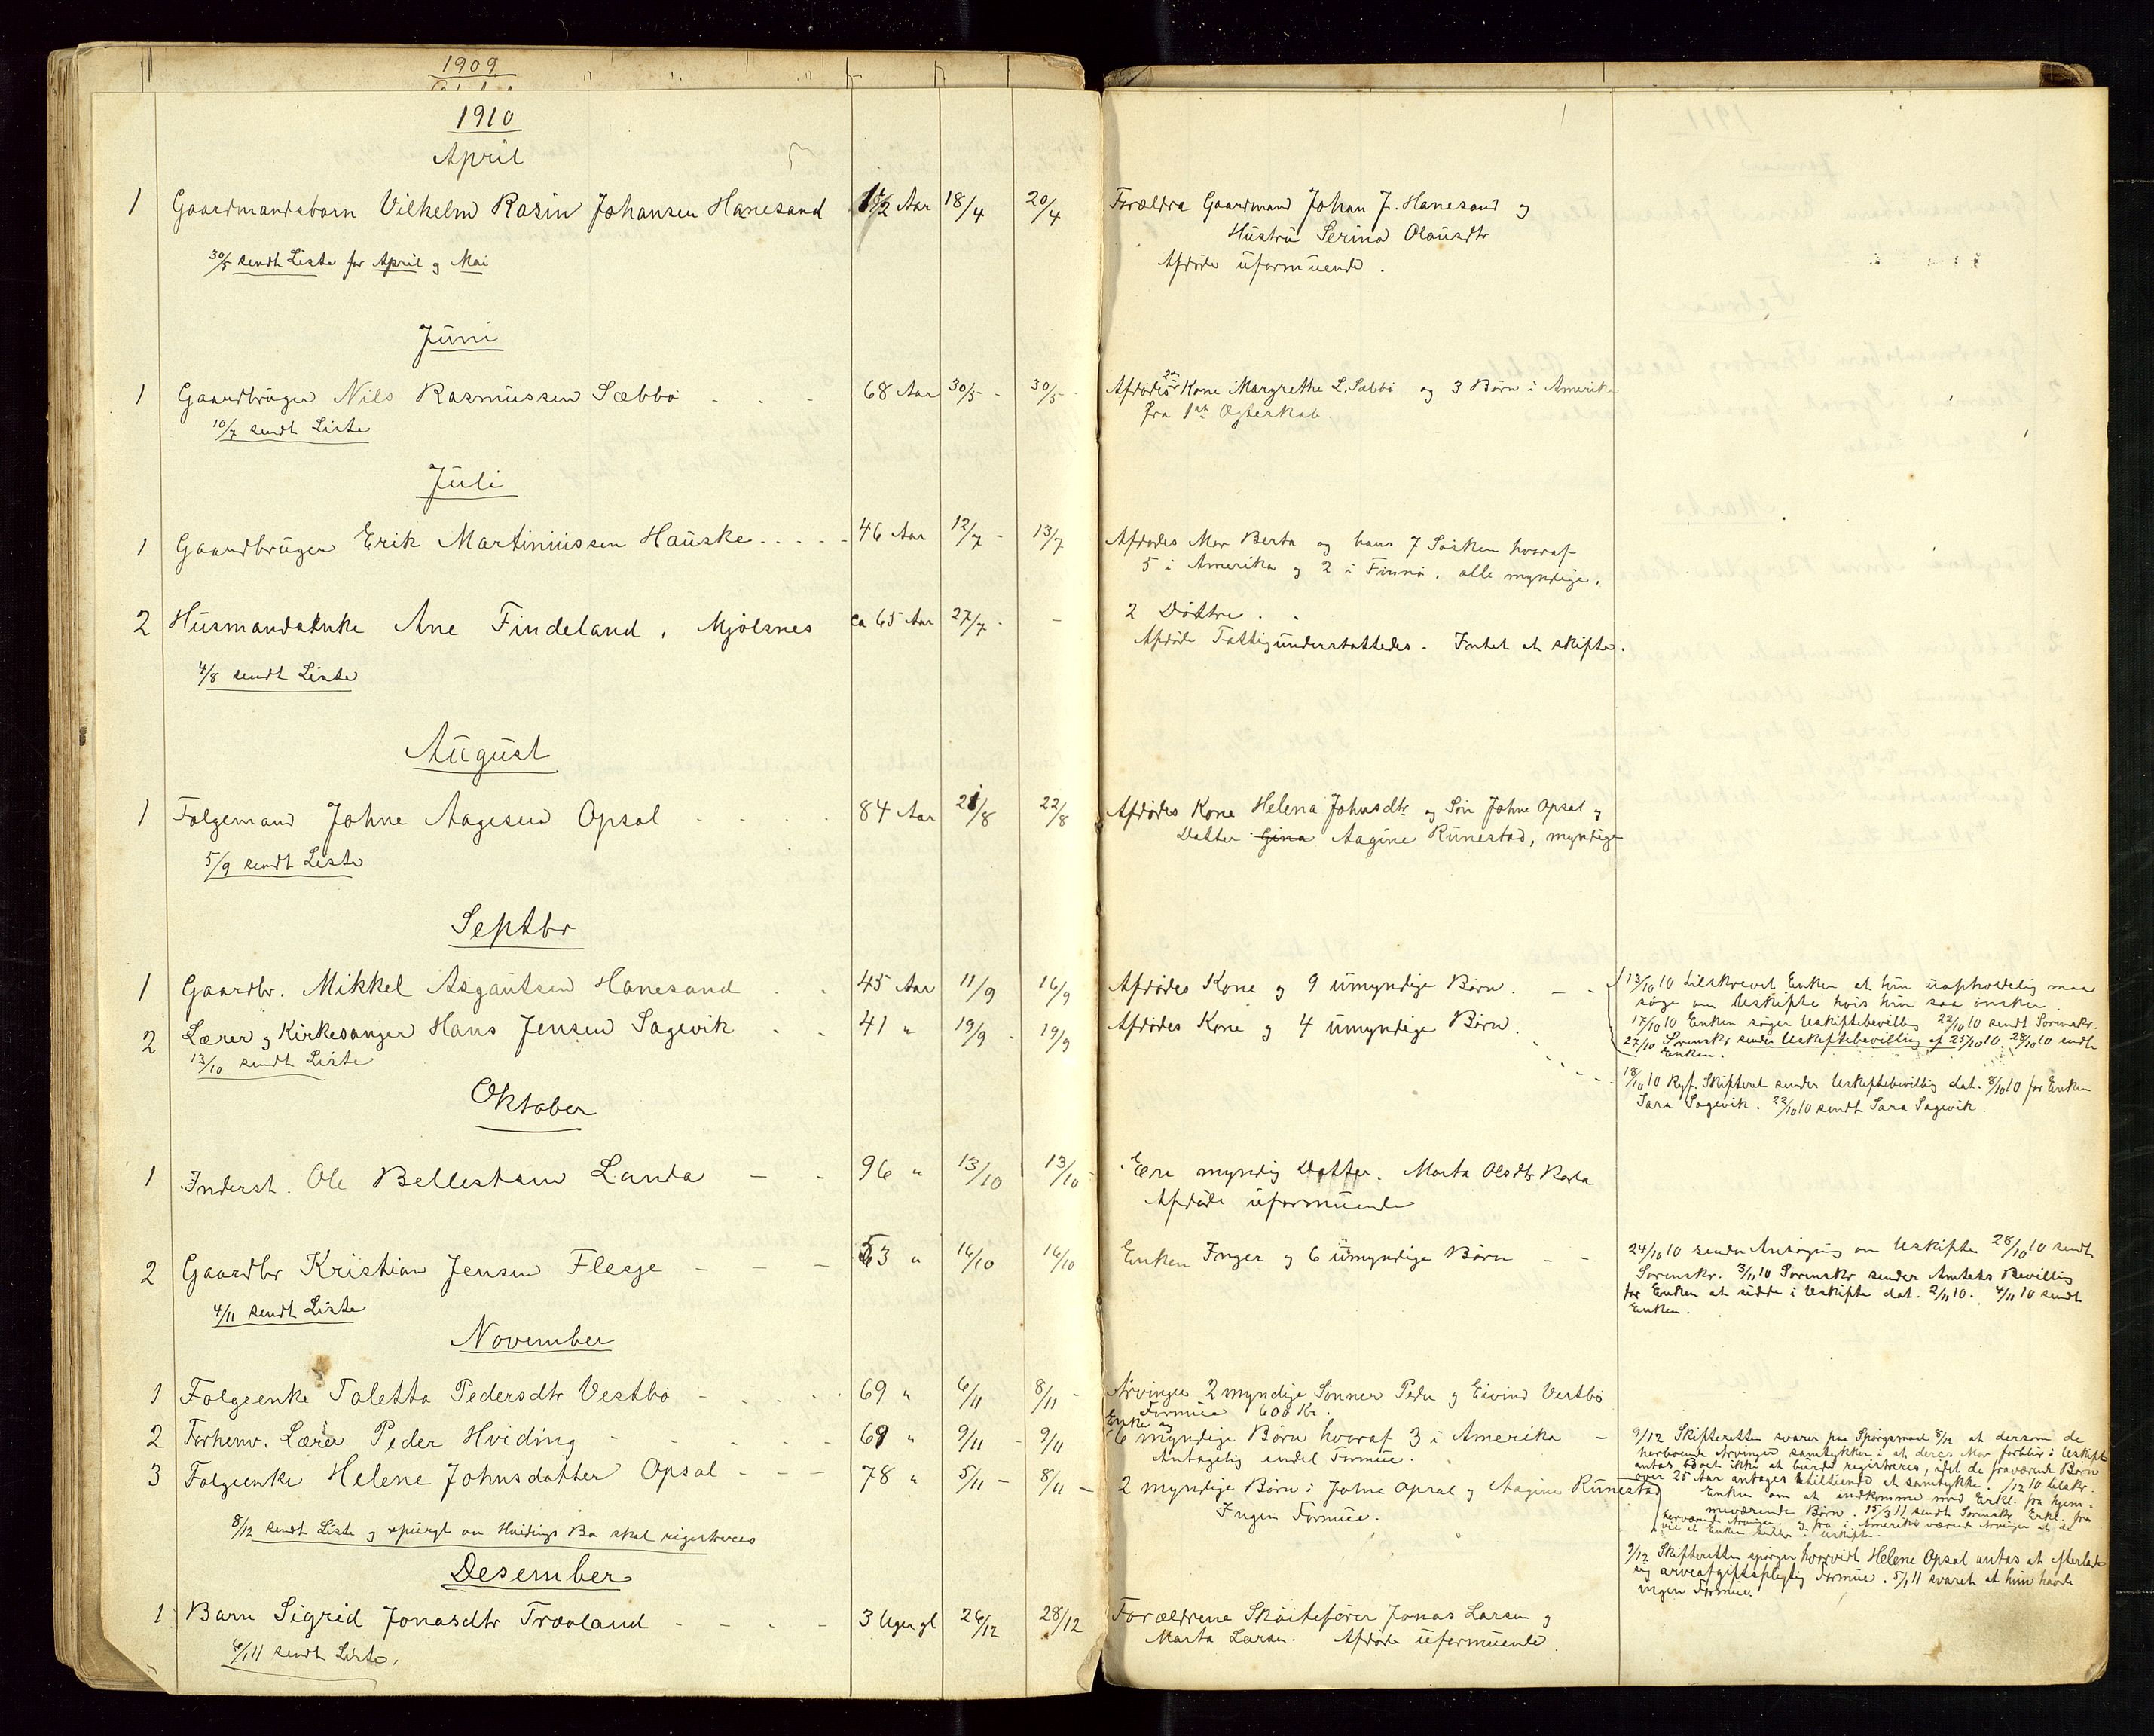 1909
1910
April
1 Gaardmandsbarn Vilhelm Rasin Johansen Hanesand 1 1/2 Aar 18/4 20/4 Forældra Gaardmand Johan J. Hanesand og
Hustru Serina Olausdtr
Afdøde uformuende.
30/5 sendt Liste for April og Mai
Juni
1 Gaardbruger Nils Rasmussen Sæbbø 68 Aar 30/5 - 30/5 - Afdødes 2den Kone Margrethe L. Sæbbø og 3 Børn i Amerika
fra 1ste Ægteskab.
10/7 sendt Liste
Juli
1 Gaardbruger Erik Martiniussen Hauske . . . . - 46 Aar 12/7 - 13/7 Afdødes Mor Berta og hans 7 Søsken hvoraf
5 i Amerika og 2 i Finnø. alle myndige.
2 Husmandsenke Ane Findeland, Mjølsnes ca 65 Aar 27/7 - - 2 Døttre.
Afdøde Fattigunderstøttedes. Intet at skifte.
4/8 sendt Liste
August
1 Følgemand Johne Aagesen Opsal 84 Aar 21/8 22/8 Afdødes Kone Helena Johnsdtr og Søn Johne Opsal og
Datter Gina Aagine Runestad, myndige
5/9 sendt Liste
Septbr
1 Gaardbr. Mikkel Asgautsen Hanesand 45 Aar 11/9 16/9 Afdødes Kone og 9 umyndige Børn. - -
2 Lærer og Kirkesanger Hans Jensen Sagevik 41 " 19/9 - 19/9 Afdødes Kone og 4 umyndige Børn.
13/10 sendt Liste
13/10 10 tilskrevet Enken at hun uopholdelig maa
søge om Uskifte hvis hun saa ønsker.
17/10 10 Enken søger Uskiftebevilling 22/10 10 sendt Sornskr.
27/10 Sorenskr sender Uskiftebevilling af 25/10 10. 28/10 10 sendt
Enken.
18/10 10 Ryf. Skifteret sender Uskiftebevillig dat. 8/10 10 for Enken
Sara Sagevik. 22/10 10 sendt Sara Sagevik.
Oktober
1 Inderst. Ole Bellestsen Landa - - 96 " 13/10 13/10 - Een myndig Datter. Marta Olsdtr
Afdøde uformuende
2 Gaardbr Kristian Jensen Flesje - - - 53 " 16/10 16/10 Enken Inger og 6 umyndige Børn - -
24/10 10 sender Ansøgning om Uskifte 28/10 10 sendt
Sorenskr. 3/11 10 Sorenskr sender Amtets Bevilling
for Enken at sidde i Uskifte dat. 2/11 10. 4/11 10 sendt
Enken.
4/11 sendt Liste
November
1 Følgeenke Taletta Pedersdtr Vestbø - 69 " 6/11 8/11 - Arvinger 2 myndige Sønner Peder og Eivind Vestbø
Formue 600 Kr.
2 Forhenv. Lærer Peder Hviding - 69 " 9/11 - 9/11 Enke og 6 myndige Børn hvoraf 3 i Amerika -
Antagelig endel Formue.
3 Følgeenke Helene Johnsdatter Opsal - - - 78 " 5/11 - 8/11 - 2 myndige Børn: Johne Opsal og Aagine Runestad
Ingen Formue.
9/12 Skifteretten svarer paa Spørgsmaal 8/12 at dersom de
herboende Arvinger samtykker i at deres Mor forblir i Uskifte
antas Boet ikke at burde registreres, idet de fraværende Børn
over 25 Aar antages stiltiende at samtykke. /12 10 tilskr.
Enken om at indkomme med Erkl. fra hjem-
meværende Børn. 15/3 11 sendt Sornskr Erkl. fra
herværende Arvinger og fra i Amerika værende Arvinger at de
vil at Enken sidder i Uskifte.
9/12 Skifteretten spørger hvorvidt Helene Opsal antas at efterlate
sig arveafgiftspligtig Formue. 5/1 11 svaret at hun havde
ingen Formue.
8/12 sendt Liste og spurgt om Hvidings Bo skal registreres
Desember
1 Barn Sigrid Jonasdtr Trøvland - - - - 3 Uger gl 26/12 28/12 Forældrene Skøitefører Jonas Larsen og
Marta Larsen. Afdøde uformuende.
6/1 11 sendt Liste.